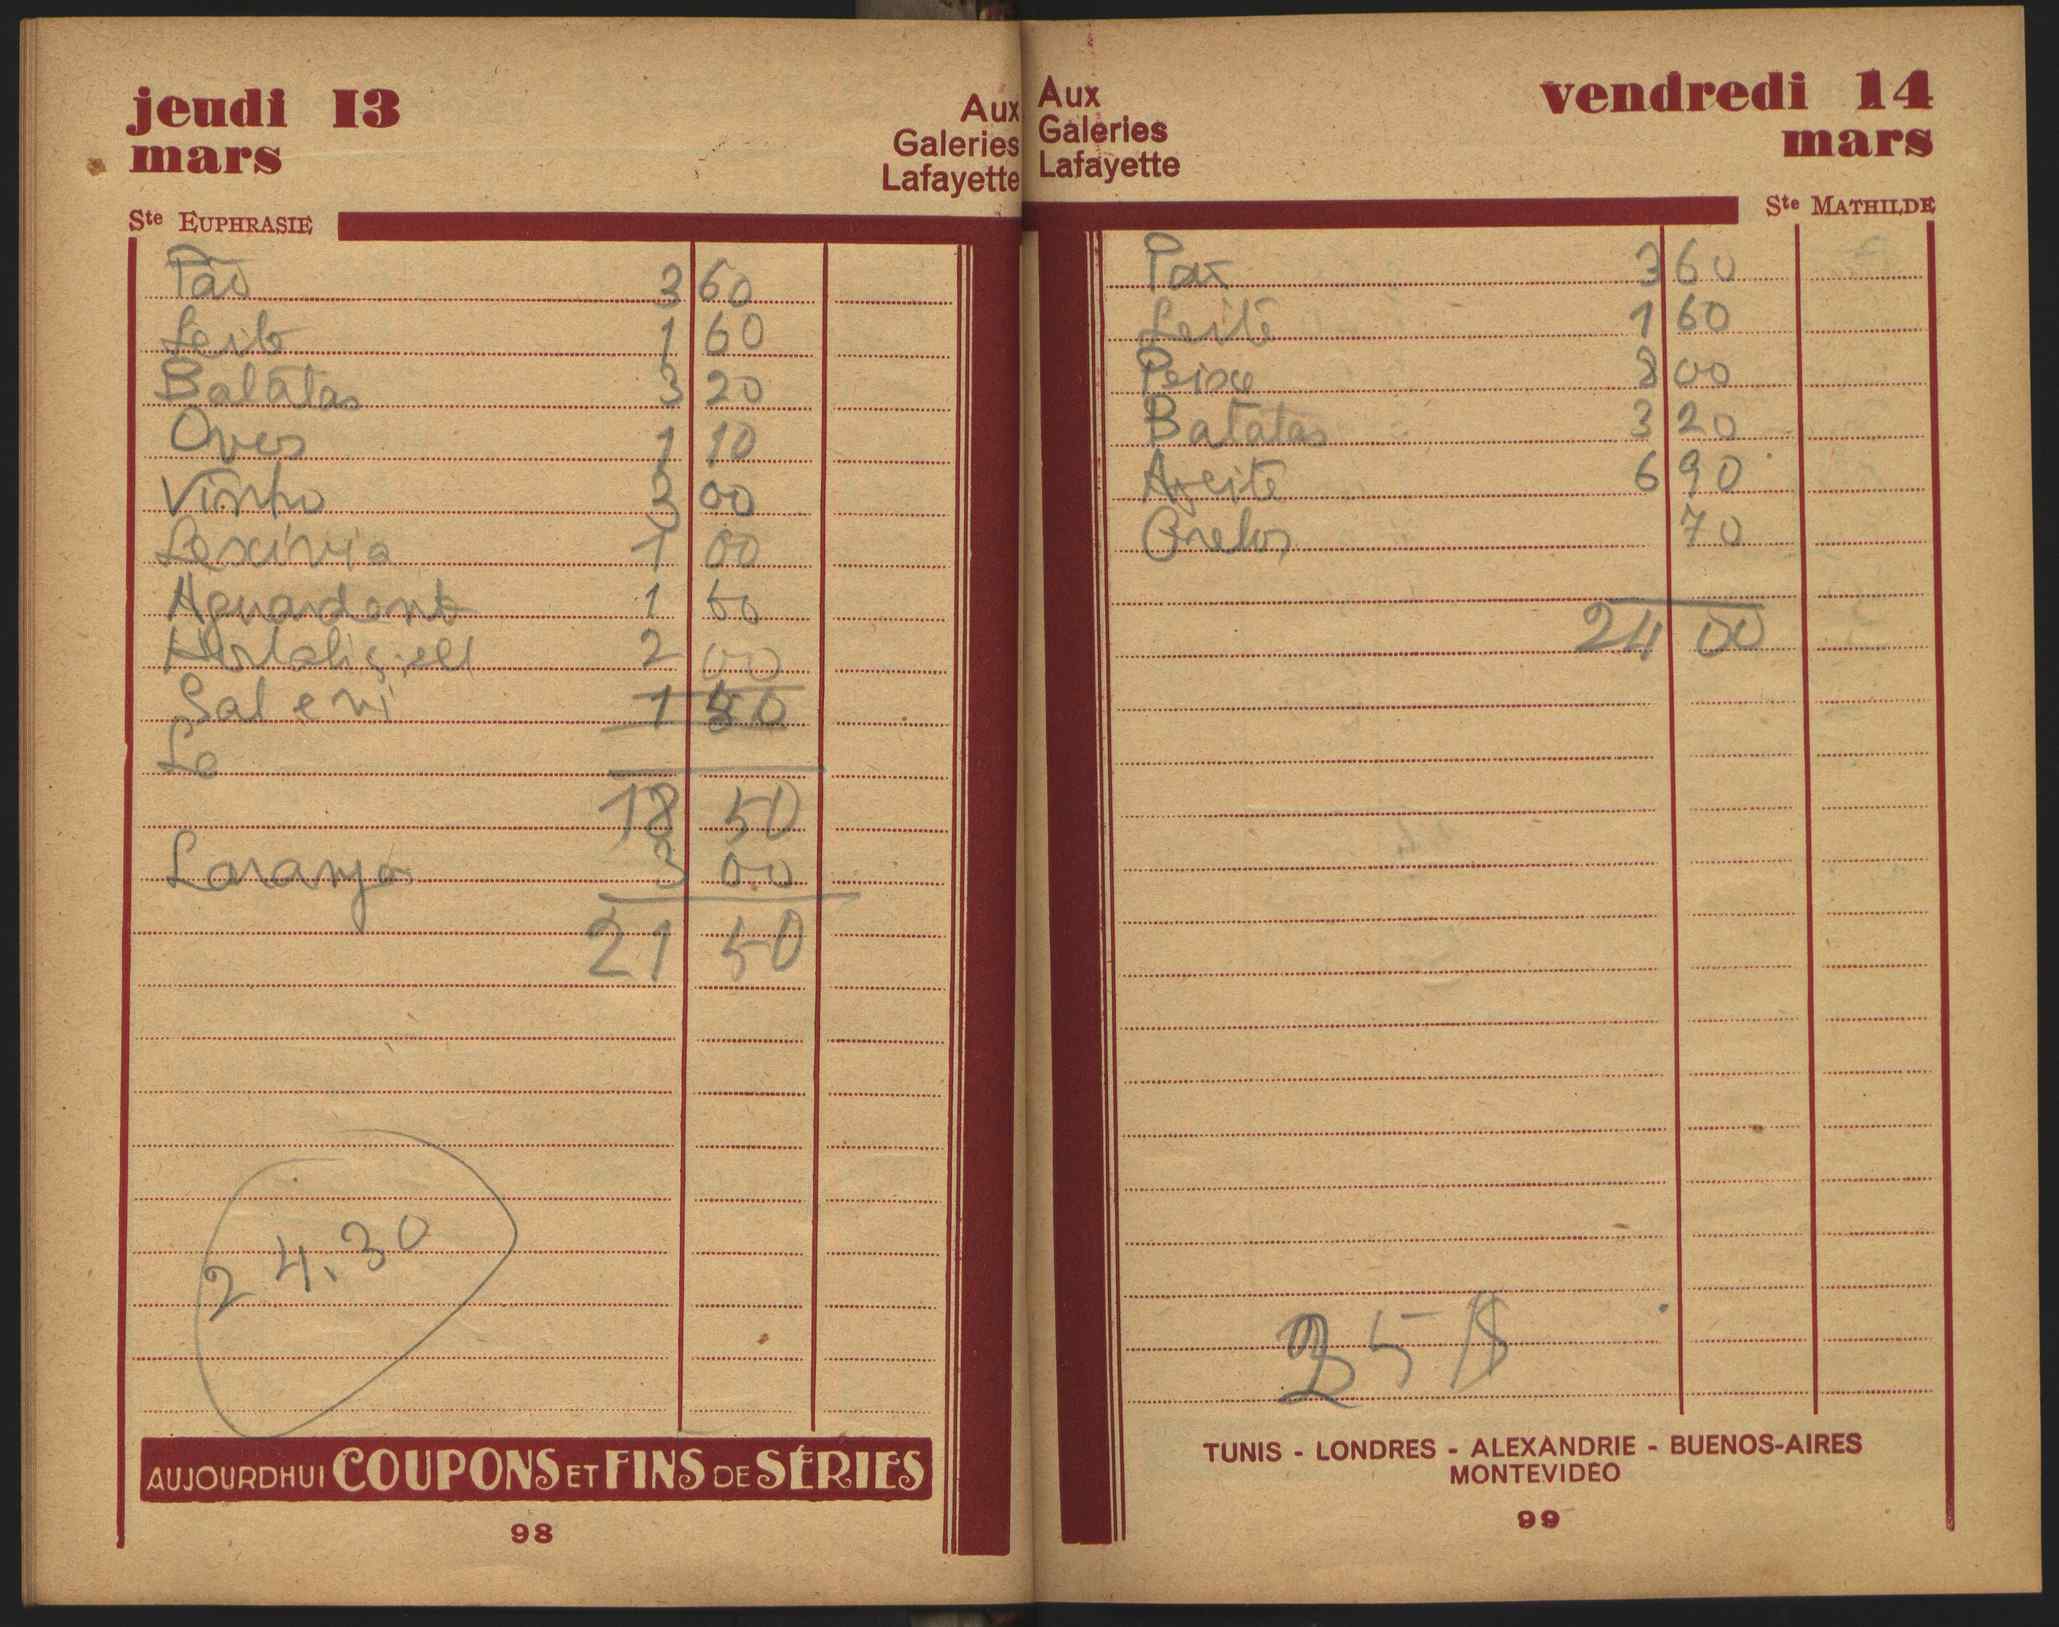 jeudi 13
mars
Aux
Galeries
Lafayette
Ste EUPHRASIE
Pão 3 60
Leite 1 60
Batatas 3 20
Oves 1 10
Vinho 3 00
Lexívia 1 00
Aguardente 1 50
2 00
Sal e 1 50
Le
18 50
Laranja 3 00
21 50
24.30
AUJOURDHUI COUPONS ET FINS DE SÉRIES
98
Aux
Galeries
Lafayette
vendredi 14
mars
Ste MATHILDE
Pão 3 60
Leite 1 60
Peixe 8 00
Batatas 3 20
Azeite 6 90
Grelos 70
24 00
25 $
TUNIS - LONDRES - ALEXANDRIE - BUENOS-AIRES
MONTEVIDEO
99